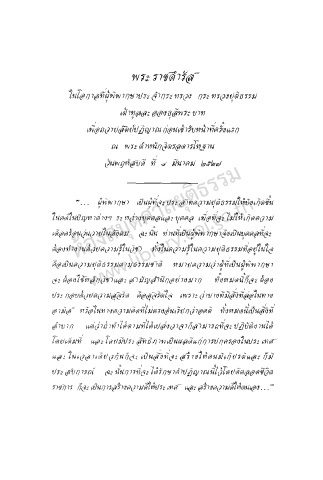 พระราชดำรัส
ในโอกาสที่ผู้พิพากษาประจำกระทรวง กระทรวงยุติธรรม
เฝ้าทูลละอองธุลีพระบาท
เพื่อถวายสัตย์ปฏิญาณก่อนเข้ารับหน้าที่ครั้งแรก
ณ พระตำหนักจิตรลดารโหฐาน
วันพฤหัสบดี ที่ ๘ มีนาคม ๒๕๒๗
"... ผู้พิพากษา เป็นผู้ที่จะประสาทความยุติธรรมให้บังเกิดขึ้น
ในคดีในปัญหาต่างๆ ระหว่างบุคคลและบุคคล เพื่อที่จะไม่ให้เกิดความ
เดือดร้อนวุ่นวายในสังคม ฉะนั้น ท่านที่เป็นผู้พิพากษาจึงเป็นบุคคลที่จะ
ต้องทำงานด้วยความรู้ในวิชา ทั้งในความรู้ในความยุติธรรมที่อยู่ในใจ
คือเป็นความยุติธรรมตามธรรมชาติ หมายความว่าผู้ที่เป็นผู้พิพากษา
จะต้องใช้หลักวิชาและสามัญสำนึกอย่างมาก ทั้งหมดนี้ก็จะต้อง
ประกอบด้วยความสุจริต คือสุจริตใจ เพราะว่าบางทีมีสิ่งที่ล่อในทาง
อามิส หรือในทางความคิดที่ไม่ตรงเล่นเรียกว่าอคติ ทั้งหมดนี้เป็นสิ่งที่
ลำบาก แต่ว่าถ้าทำได้ตามที่ได้เปล่งวาจาก็สามารถที่จะปฏิบัติงานได้
โดยเต็มที่ และโดยมีประสิทธิภาพเป็นผลดีแก่การปกครองในประเทศ
และในเวลาเดียวกันก็จะเป็นสิ่งที่จะสร้างให้ตนมีเกียรติและก็มี
ประสบการณ์ ฉะนั้นการที่จะได้รักษาคำปฏิญาณนี้ไว้โดยตลอดชีวิต
ราชการ ก็จะเป็นการสร้างความดีให้ประเทศ และสร้างความดีให้ตนเอง..."